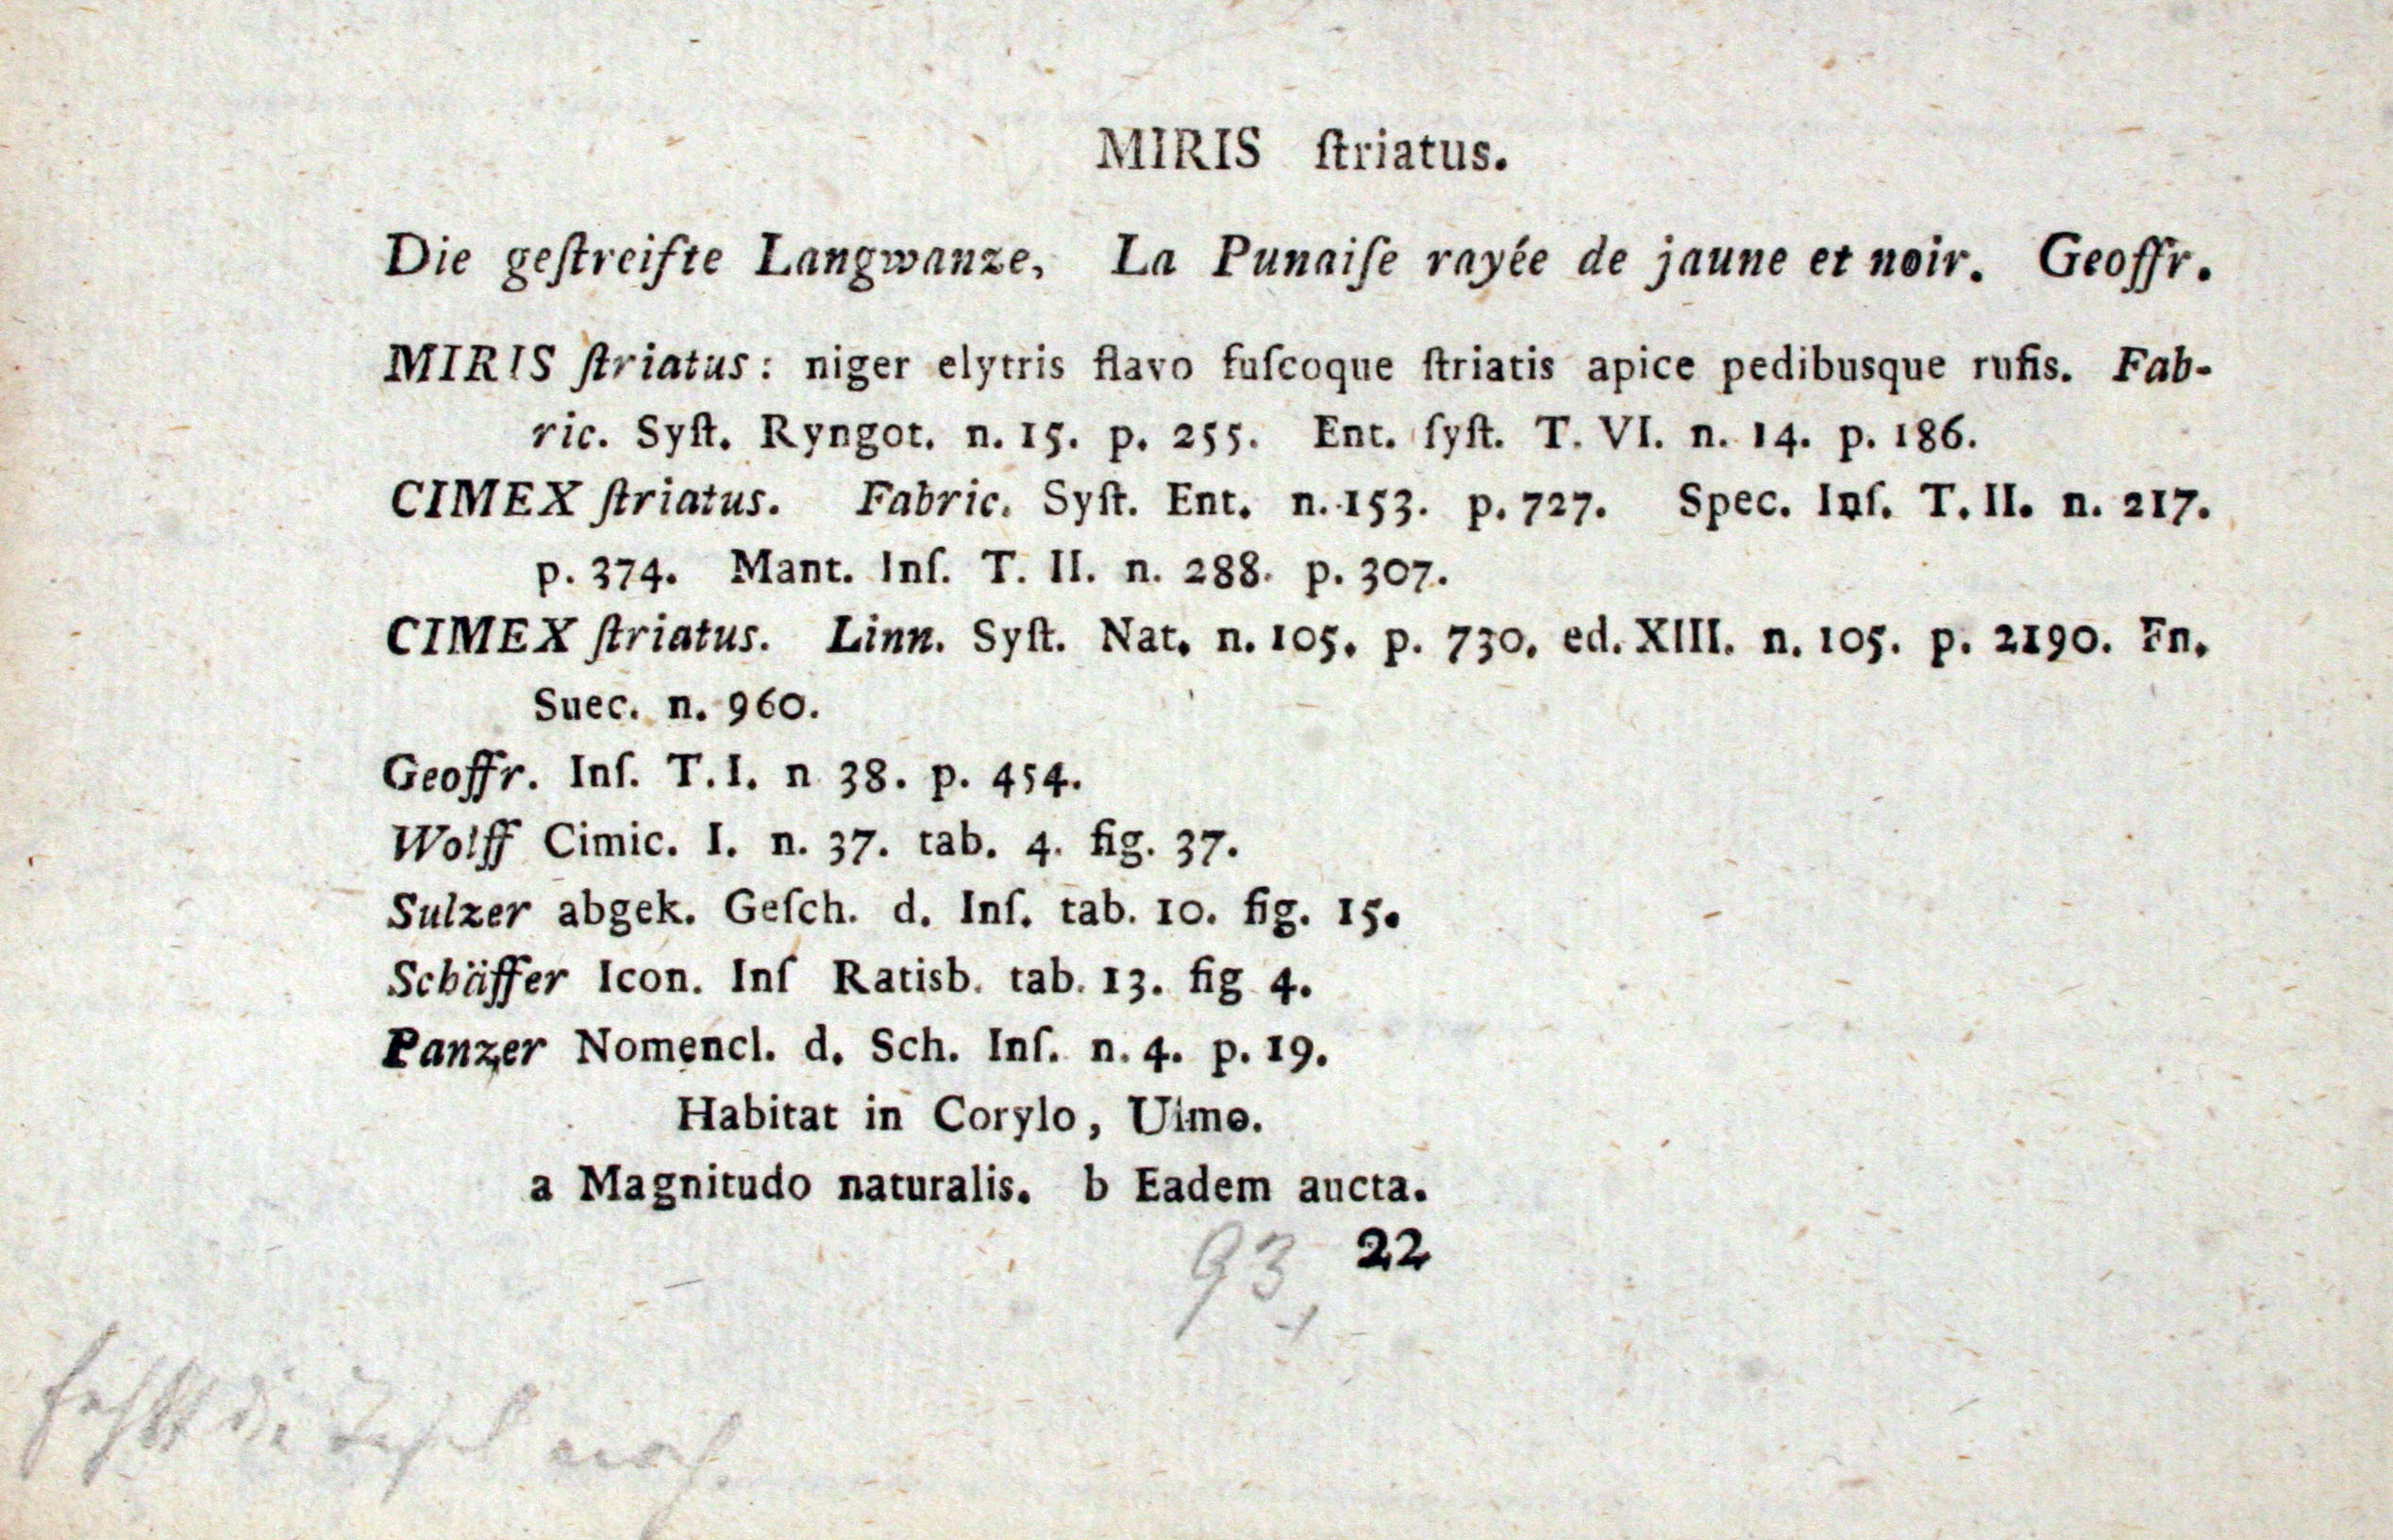 MIRIS ſtriatus.
Die geſtreifte Langwanze, La Punaiſe rayée de jaune et noir. Geoffr.
MIRIS ſtriatus: niger elytris flavo fuſcoque ſtriatis apice pedibusque rufis. Fab-
ric. Syſt. Ryngot. n. 15. p. 255. Ent. ſyſt. T. VI. n. 14. p. 186.
CIMEX ſtriatus. Fabric. Syſt. Ent. n. 153. p. 727. Spec. Inſ. T. II. n. 217.
p. 374. Mant. Inſ. T. II. n. 288. p. 307.
CIMEX ſtriatus. Linn. Syſt. Nat. n. 105. p. 730. ed. XIII. n. 105. p. 2190. Fn.
Suec. n. 960.
Geoffr. Inſ. T. I. n 38. p. 454.
Wolff Cimic. I. n. 37. tab. 4. fig. 37.
Sulzer abgek. Geſch. d. Inſ. tab. 10. fig. 15.
Schäffer Icon. Inſ Ratisb. tab. 13. fig 4.
Panzer Nomencl. d. Sch. Inſ. n. 4. p. 19.
Habitat in Corylo, Ulmo.
a Magnitudo naturalis. b Eadem aucta.
93, 22
fehlt die Tafel noch.